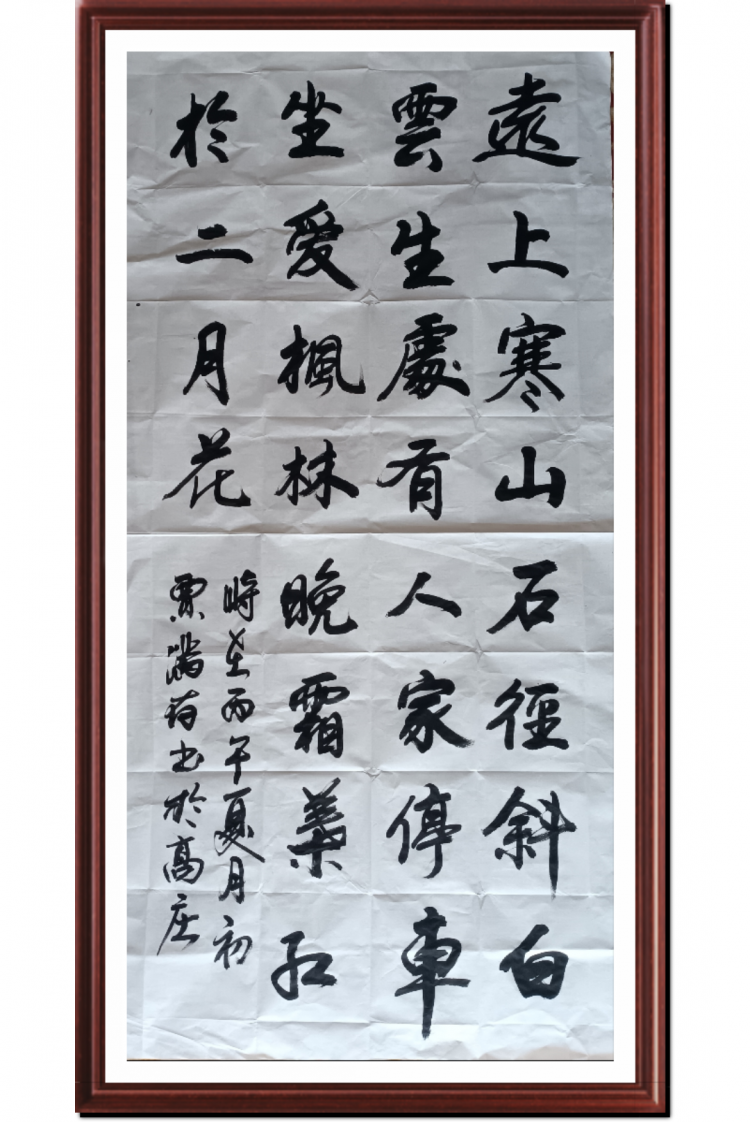 遠上寒山石徑斜白
雲生處有人家停車
坐愛楓林晚霜葉紅
於二月花
時在丙午夏月初
書於高庄